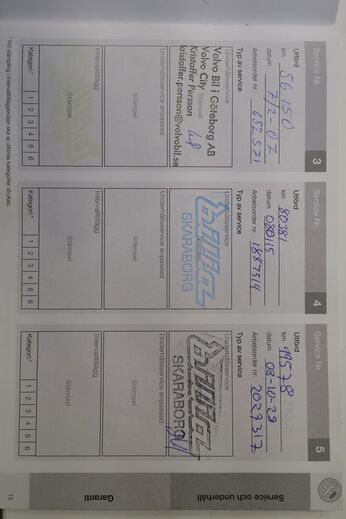 Service och underhåll
Garanti
15
Service Nr. 3
Utförd
km 56 150
datum 7/2-07
Arbetsorder nr. 682571
Typ av service
Underhållsservice
Volvo Bil i Göteborg AB
Volvo City Stämpel
Kristoffer Persson
kristoffer.persson@volvobil.se
Underhållsservice anpassad
Stämpel
Intervalltillägg
Stämpel
Kategori* 1 2 3 4 5 6
Service Nr. 4
Utförd
km 80381
datum 080115
Arbetsorder nr. 1887514
Typ av service
Underhållsservice
SKARABORG
Underhållsservice anpassad
Stämpel
Intervalltillägg
Stämpel
Kategori* 1 2 3 4 5 6
Service Nr. 5
Utförd
km 99578
datum 08-10-29
Arbetsorder nr. 2027317
Typ av service
Underhållsservice
SKARABORG
Underhållsservice anpassad
Stämpel
Intervalltillägg
Stämpel
Kategori* 1 2 3 4 5 6